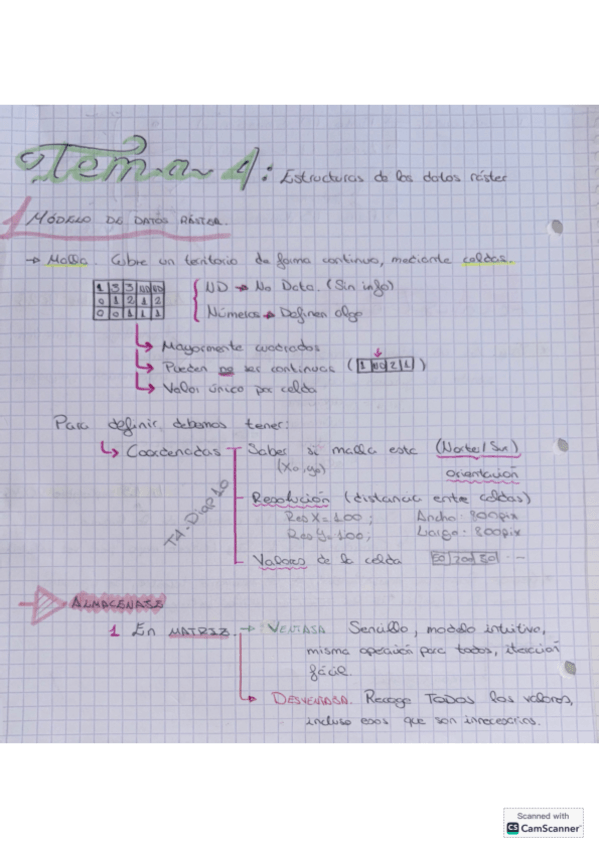 Tema 4: Estructuras de los datos ráster
1 MÓDELO DE DATOS RÁSTER.
→ Malla. Cubre un territorio de forma continua, mediante celdas.
1 3 3 ND ND
0 1 2 1 2
0 0 1 1 1
ND → No Data. (Sin info)
Números → Definen algo
Mayormente cuadradas
Pueden no ser continuas ( 1 ND 2 1 )
Valor único por celda
Para definir debemos tener:
Coordenadas
Saber si malla esta (Norte/Sur)
(X0, y0)
orientación
Resolución (distancia entre celdas)
Res X = 100; Ancho: 800pix
Res Y = 100; Largo: 800pix
Valores de la celda 50 200 50 ...
TA-Diap 10
ALMACENAJE
1 En MATRIZ. → VENTAJA. Sencillo, modelo intuitivo,
misma operación para todos, iteración
fácil.
DESVENTAJA. Recoge TODOS los valores,
incluso esos que son innecesarios.
Scanned with
CS CamScanner